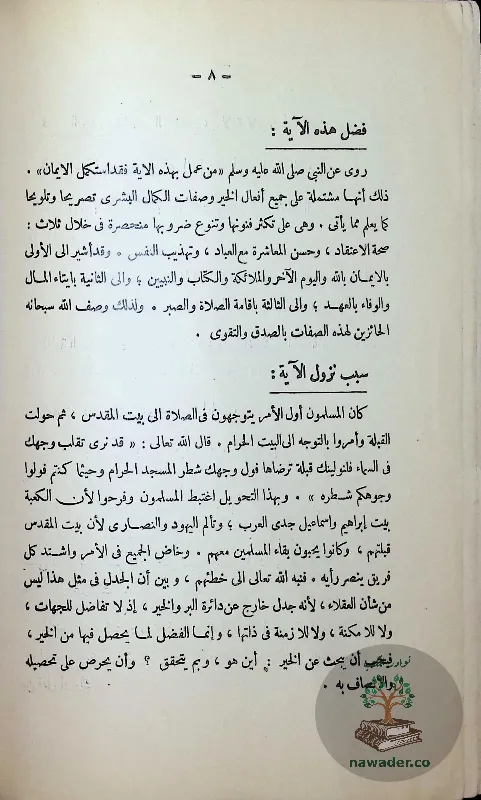 — ٨ —
فضل هذه الآية :
روى عن النبي صلى الله عليه وسلم «من عمل بهذه الاية فقد استكمل الايمان» .
ذلك أنها مشتملة على جميع أفعال الخير وصفات الكمال البشرى تصريحا وتلويحا
كما يعلم مما يأتى . وهى على تكثر فنونها وتنوع ضروبها منحصرة فى خلال ثلاث :
صحة الاعتقاد ، وحسن المعاشرة مع العباد ، وتهذيب النفس . وقد أشير الى الأولى
بالايمان بالله واليوم الآخر والملائكة والكتاب والنبيين ؛ والى الثانية بايتاء المال
والوفاء بالعهد ؛ والى الثالثة باقامة الصلاة والصبر . ولذلك وصف الله سبحانه
الحائزين لهذه الصفات بالصدق والتقوى .
سبب نزول الآية :
كان المسلمون أول الأمر يتوجهون فى الصلاة الى بيت المقدس ، ثم حولت
القبلة وأمروا بالتوجه الى البيت الحرام . قال الله تعالى : « قد نرى تقلب وجهك
فى السماء فلنولينك قبلة ترضاها فول وجهك شطر المسجد الحرام وحيثما كنتم فولوا
وجوهكم شطره » . وبهذا التحويل اغتبط المسلمون وفرحوا لأن الكعبة
بيت إبراهيم واسماعيل جدى العرب ؛ وتألم اليهود والنصارى لأن بيت المقدس
قبلتهم ، وكانوا يحبون بقاء المسلمين معهم . وخاض الجميع فى الأمر واشتد كل
فريق ينصر رأيه . فنبه الله تعالى الى خطئهم ، و بين أن الجدل فى مثل هذا ليس
من شأن العقلاء ، لأنه جدل خارج عن دائرة البر والخير ، إذ لا تفاضل للجهات ،
ولا للامكنة ، ولا للازمنة فى ذاتها ، وإنما الفضل لما يحصل فيها من الخير ،
فيجب أن يبحث عن الخير : أين هو ، وبم يتحقق ؟ وأن يحرص على تحصيله
والاتصاف به .
nawader.co